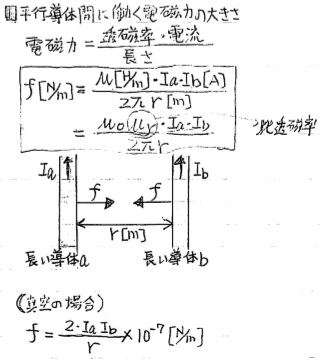 平行導体間に働く電磁力の大きさ
電磁力 = 透磁率・電流 / 長さ
f[N/m] = μ[H/m]・Ia・Ib[A] / 2πr[m]
= μ0μr・Ia・Ib / 2πr 比透磁率
Ia Ib
f f
r[m]
長い導体a 長い導体b
(真空の場合)
f = 2・IaIb / r × 10⁻⁷ [N/m]